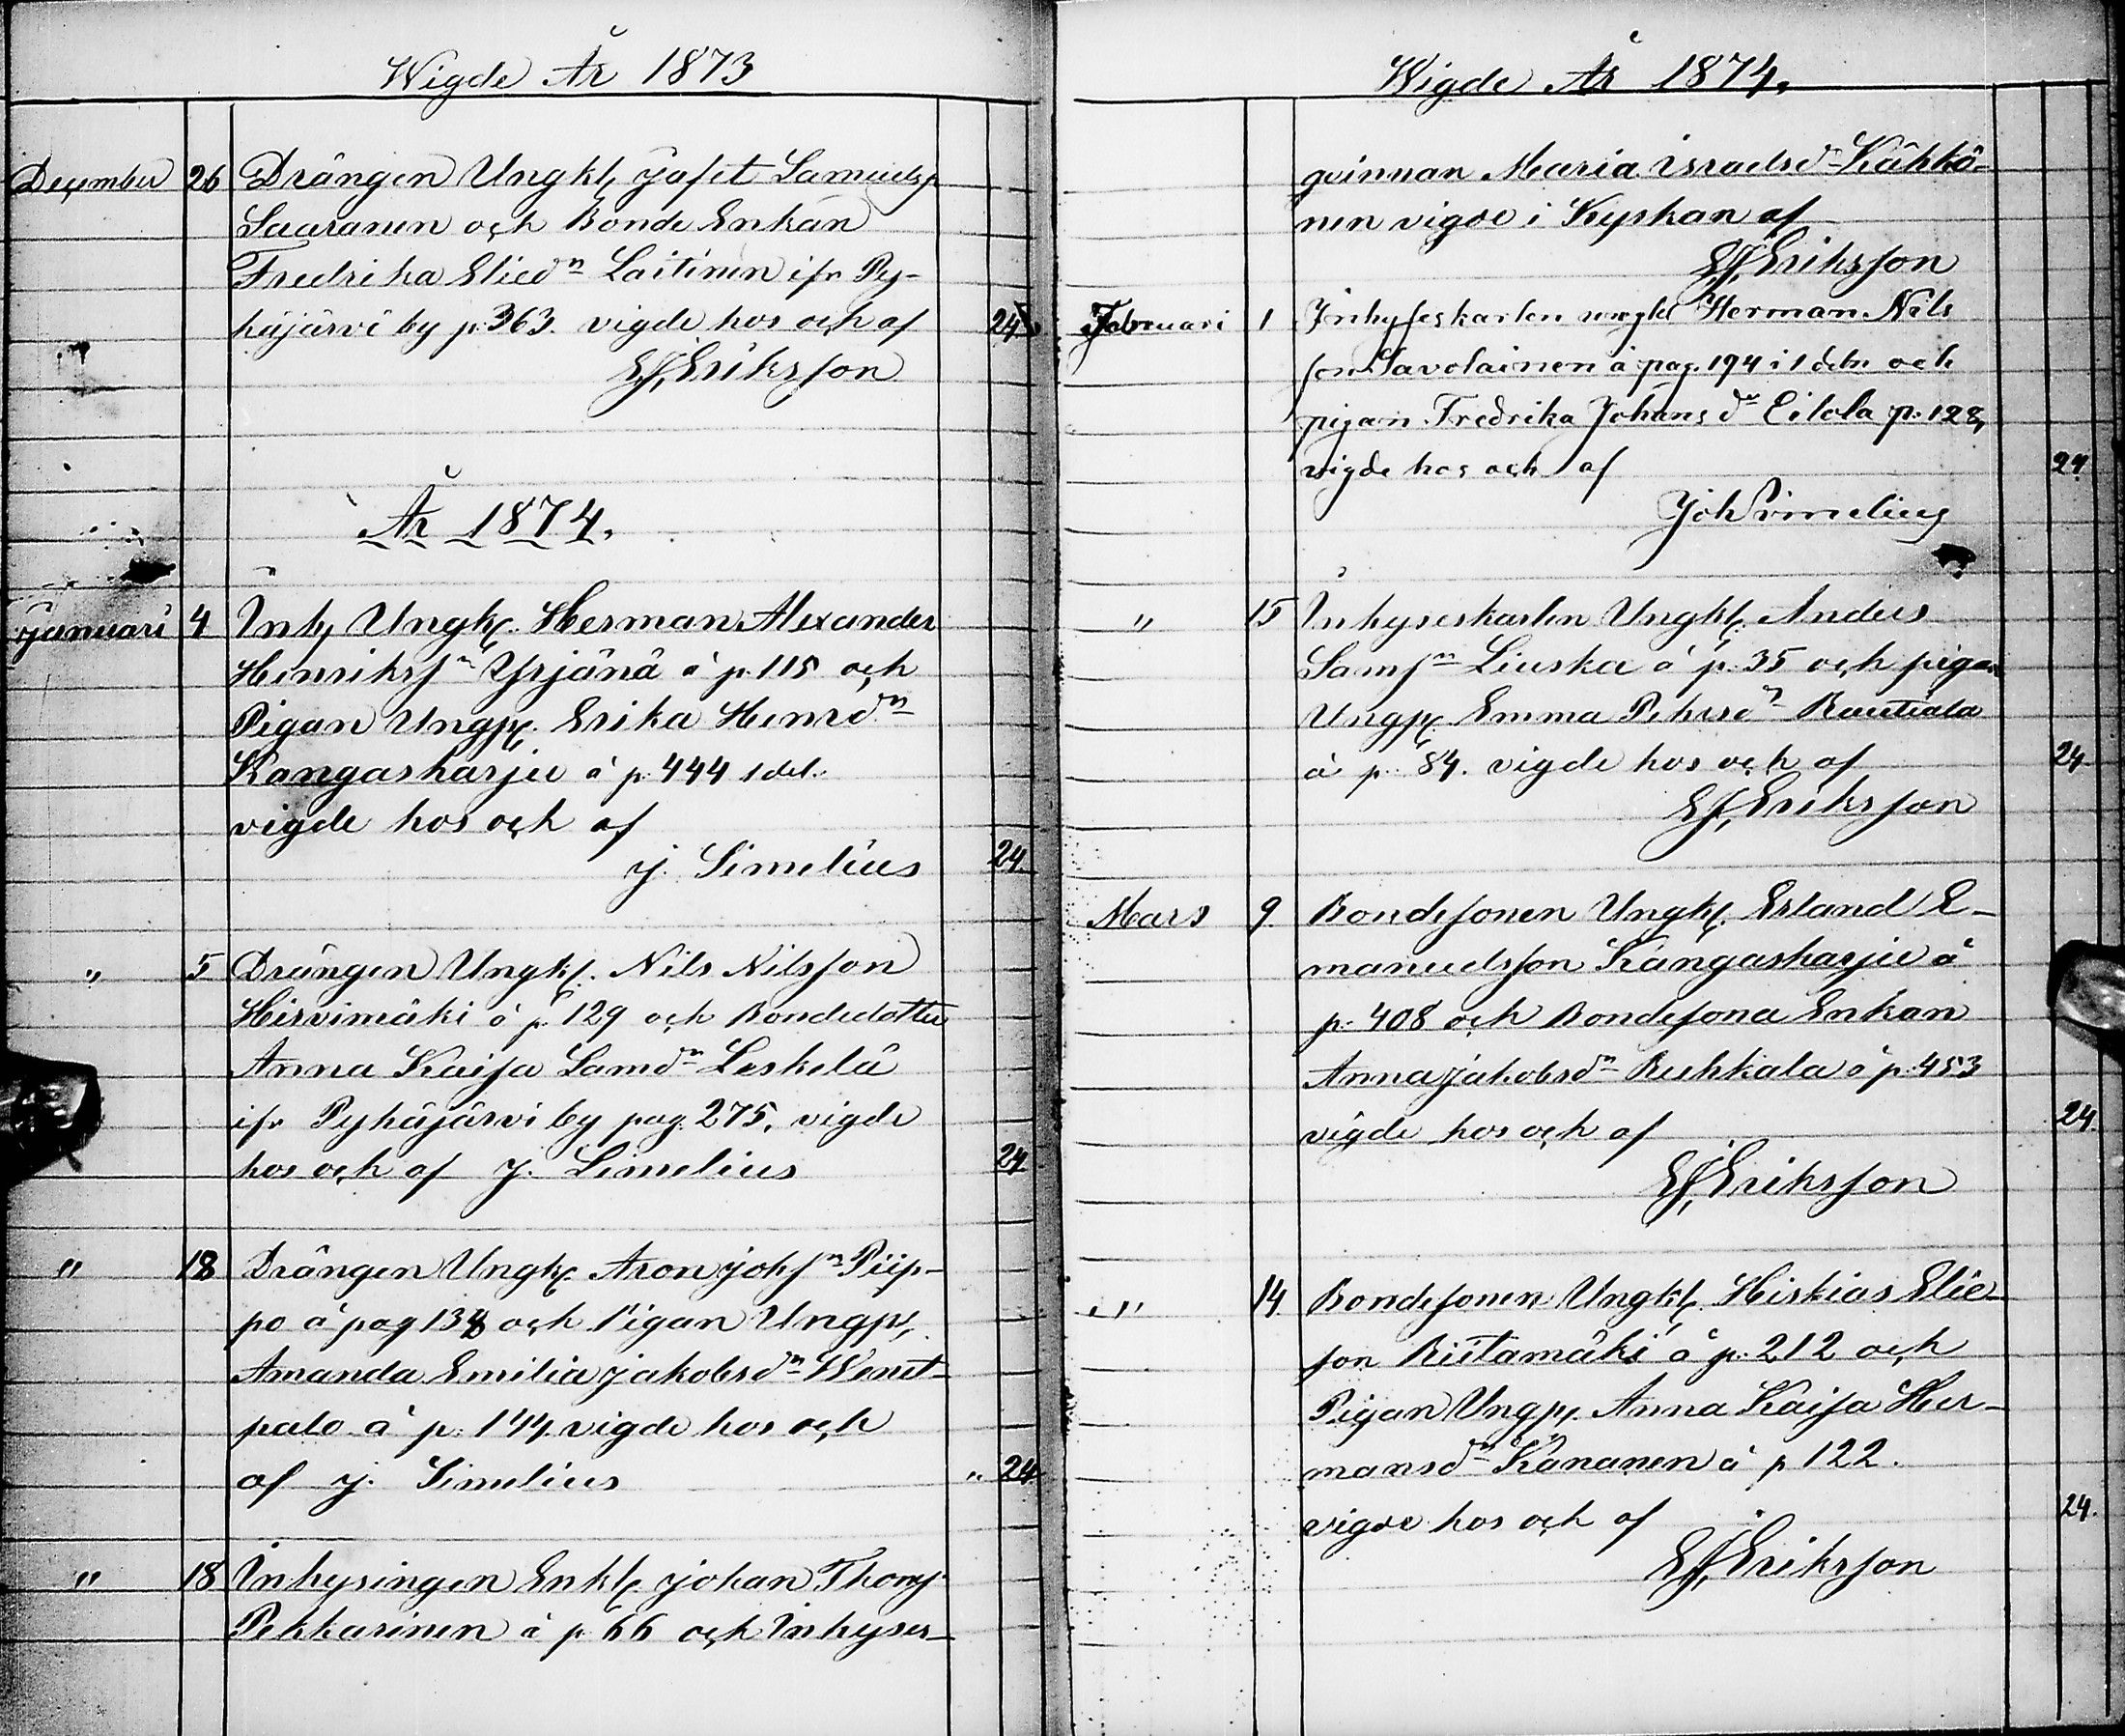 Wigde År 1873
December 26 Drängen Ungkl, Jafet Samuelss
Saaranen och Bonde Enkan
Fredrika Elied:n Laitinen ifr Py-
häjärvi by p. 363. vigde hos och af 24.
EJ, Eriksson
År 1874.
Januari 4 Inh, Ungk. Herman Alexander
Henrikss:n Yrjänä å p. 115 och
Pigan Ungp. Erika Henrd:n
Kangasharju å p. 444 1 del.
vigde hos och af
J. Simelius 24.
" 5 Drängen Ungkl. Nils Nilsson
Hirvimäki å p. 129 och Bondedotter
Anna Kaisa Samd:n Leskelä
ifr Pyhäjärvi by pag. 275. vigde
hos och af J. Simelius 24
" 18 Drängen Ungk. Aron Johs:n Piip-
po å pag 138 och Pigan Ungp,
Amanda Emilia Jakobsd:n Wenet-
palo å p. 144. vigde hos och
af J. Simelius " 24
" 18 Inhysingen Enkl. Johan Thoms
Pekkarinen å p. 66 och Inhyses-
Wigde År 1874.
qvinnan Maria Israelsd:n Kähkö-
nen vigde i Kyrkan af
EJ, Eriksson
Februari 1 Inhyseskarlen ungkl Herman Nils
son Savolainen å pag. 194 i 1 deln och
pigan Fredrika Johans d:n Eilola p. 128,
vigde hos och af 24
Joh Simelius
" 15 Inhyseskarlen Ungkl. Anders
Sams:n Liuska å p. 35 och pigan
Ungp. Emma Pehrsd:n Rautiala
å p. 84. vigde hos och af 24
EJ, Eriksson
Mars 9. Bondesonen Ungkl. Erland E-
manuelsson Kangasharju å
p. 408 och Bondesona Enkan
Anna Jakobsd:n Ruhkala å p. 453
vigde hos och af 24.
EJ, Eriksson
" 14 Bondesonen Ungkl. Hiskias Elie
son Riitamäki å p. 212 och
Pigan Ungp. Anna Kaisa Her-
mansd:n Kananen å p 122.
vigde hos och af 24.
EJ, Eriksson